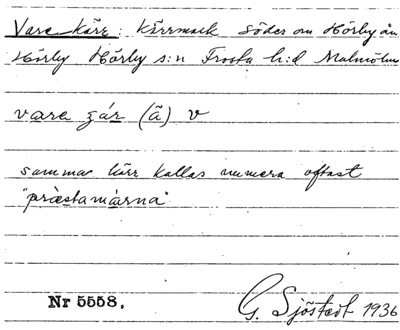 Vare kärr: Kärrmark söder om Hörby ån
Hörby Hörby s:n Frosta h:d Malmöhu
vara zár (ā) v
samma kärr kallas numera oftast
"præstamárna"
Nr 5558.
G. Sjöstedt 1936